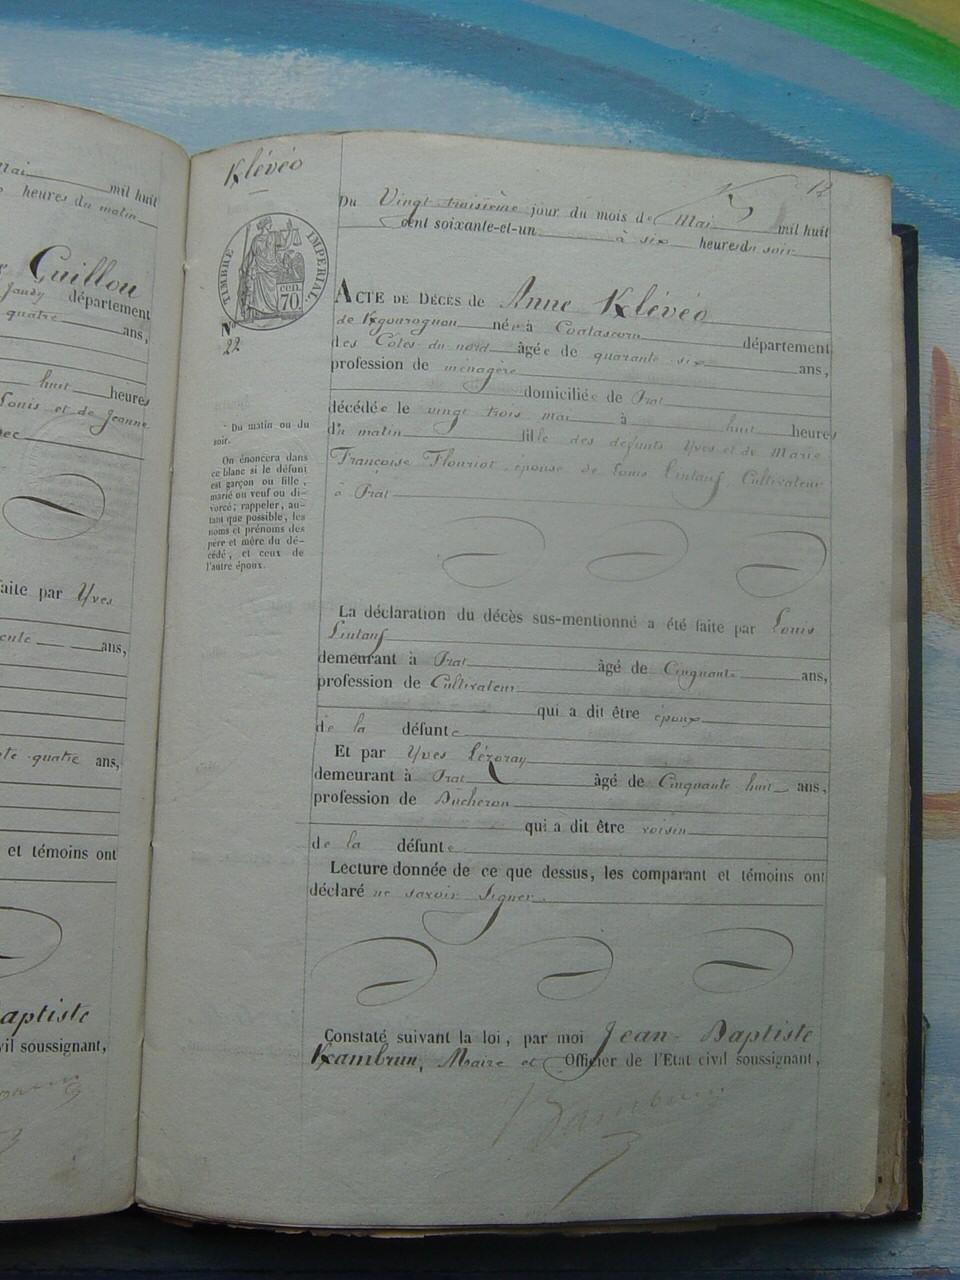 mil huit
heures du matin
Guillou
département
quatre ans,
huit heures
Louis et de Jeanne
faite par Yves
ans,
quatre ans,
et témoins ont
Baptiste
civil soussignant,
Klévéo
TIMBRE IMPÉRIAL.
cen.
70.
No
22
* Du matin ou du
soir.
On énoncera dans
ce blanc si le défunt
est garçon ou fille,
marié ou veuf ou di-
vorcé; rappeler, au-
tant que possible, les
noms et prénoms des
père et mère du dé-
cédé, et ceux de
l'autre époux.
12
Du Vingt troisième jour du mois de Mai mil huit
cent soixante-et-un à six heures du soir
ACTE DE DÉCÈS de Anne Klévéo
de née à Coatascorn département
des Côtes du nord âgée de quarante six ans,
profession de ménagère
domiciliée de Prat
décédée le vingt trois mai à huit heures
du matin fille des défunts Yves et de Marie
Françoise Flouriot, épouse de Louis Lintanf, Cultivateur
à Prat
La déclaration du décès sus-mentionné a été faite par Louis
Lintanf
demeurant à Prat âgé de Cinquante ans,
profession de Cultivateur
qui a dit être époux
de la défunte
Et par Yves Lézoray
demeurant à Prat âgé de Cinquante huit ans,
profession de Bucheron
qui a dit être voisin
de la défunte
Lecture donnée de ce que dessus, les comparant et témoins ont
déclaré ne savoir signer.
Constaté suivant la loi, par moi Jean-Baptiste
Kambrun, Maire et Officier de l'Etat civil soussignant,